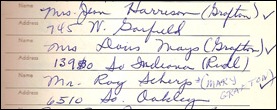 Name Mrs. Jean Harrison (Grafton) ✓
Address 745 W. Garfield
Name Mrs Doris Mays (Grafton) ✓
Address 13930 So Indiana (Rivdl)
Name Mr. Roy Scherps + (MARY GRAFTON) ✓
Address 6510 So. Oakley